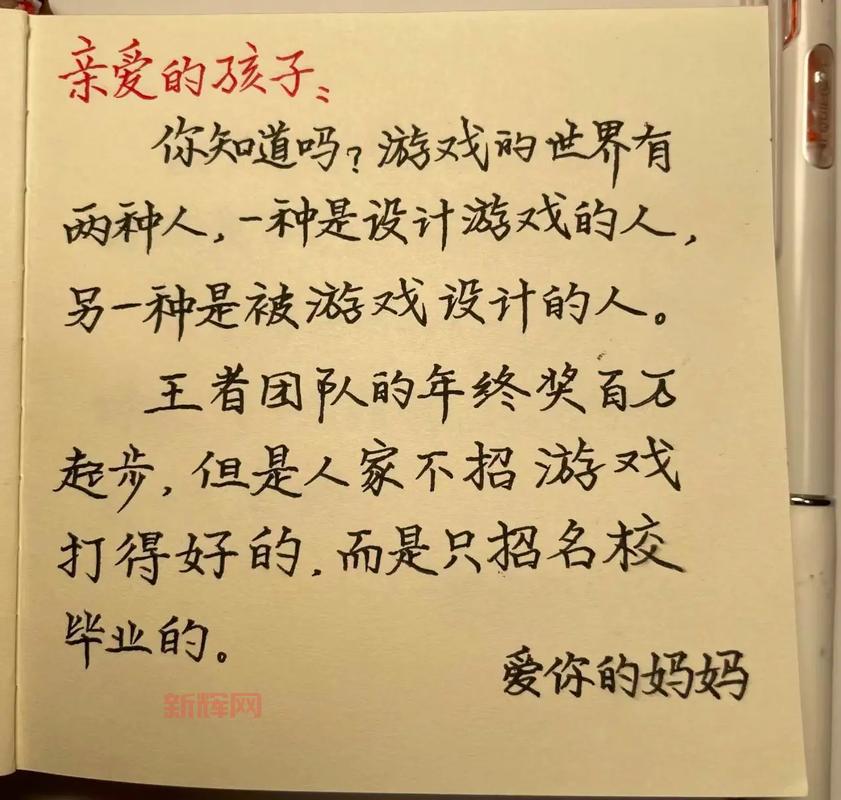 亲爱的孩子：
你知道吗？游戏的世界有
两种人，一种是设计游戏的人，
另一种是被游戏设计的人。
王者团队的年终奖百万
起步，但是人家不招游戏
打得好的，而是只招名校
毕业的。
爱你的妈妈
新辉网